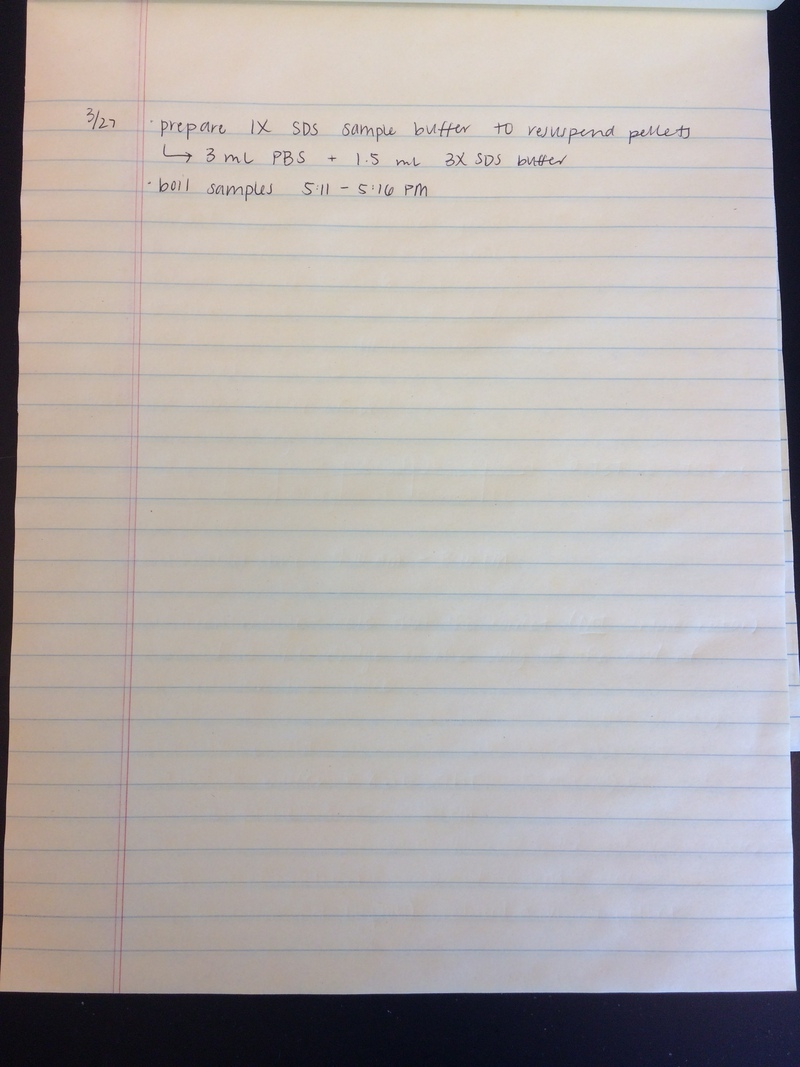 3/27 · prepare 1X SDS sample buffer to resuspend pellets
↳ 3 mL PBS + 1.5 mL 3X SDS buffer
· boil samples 5:11 - 5:16 PM